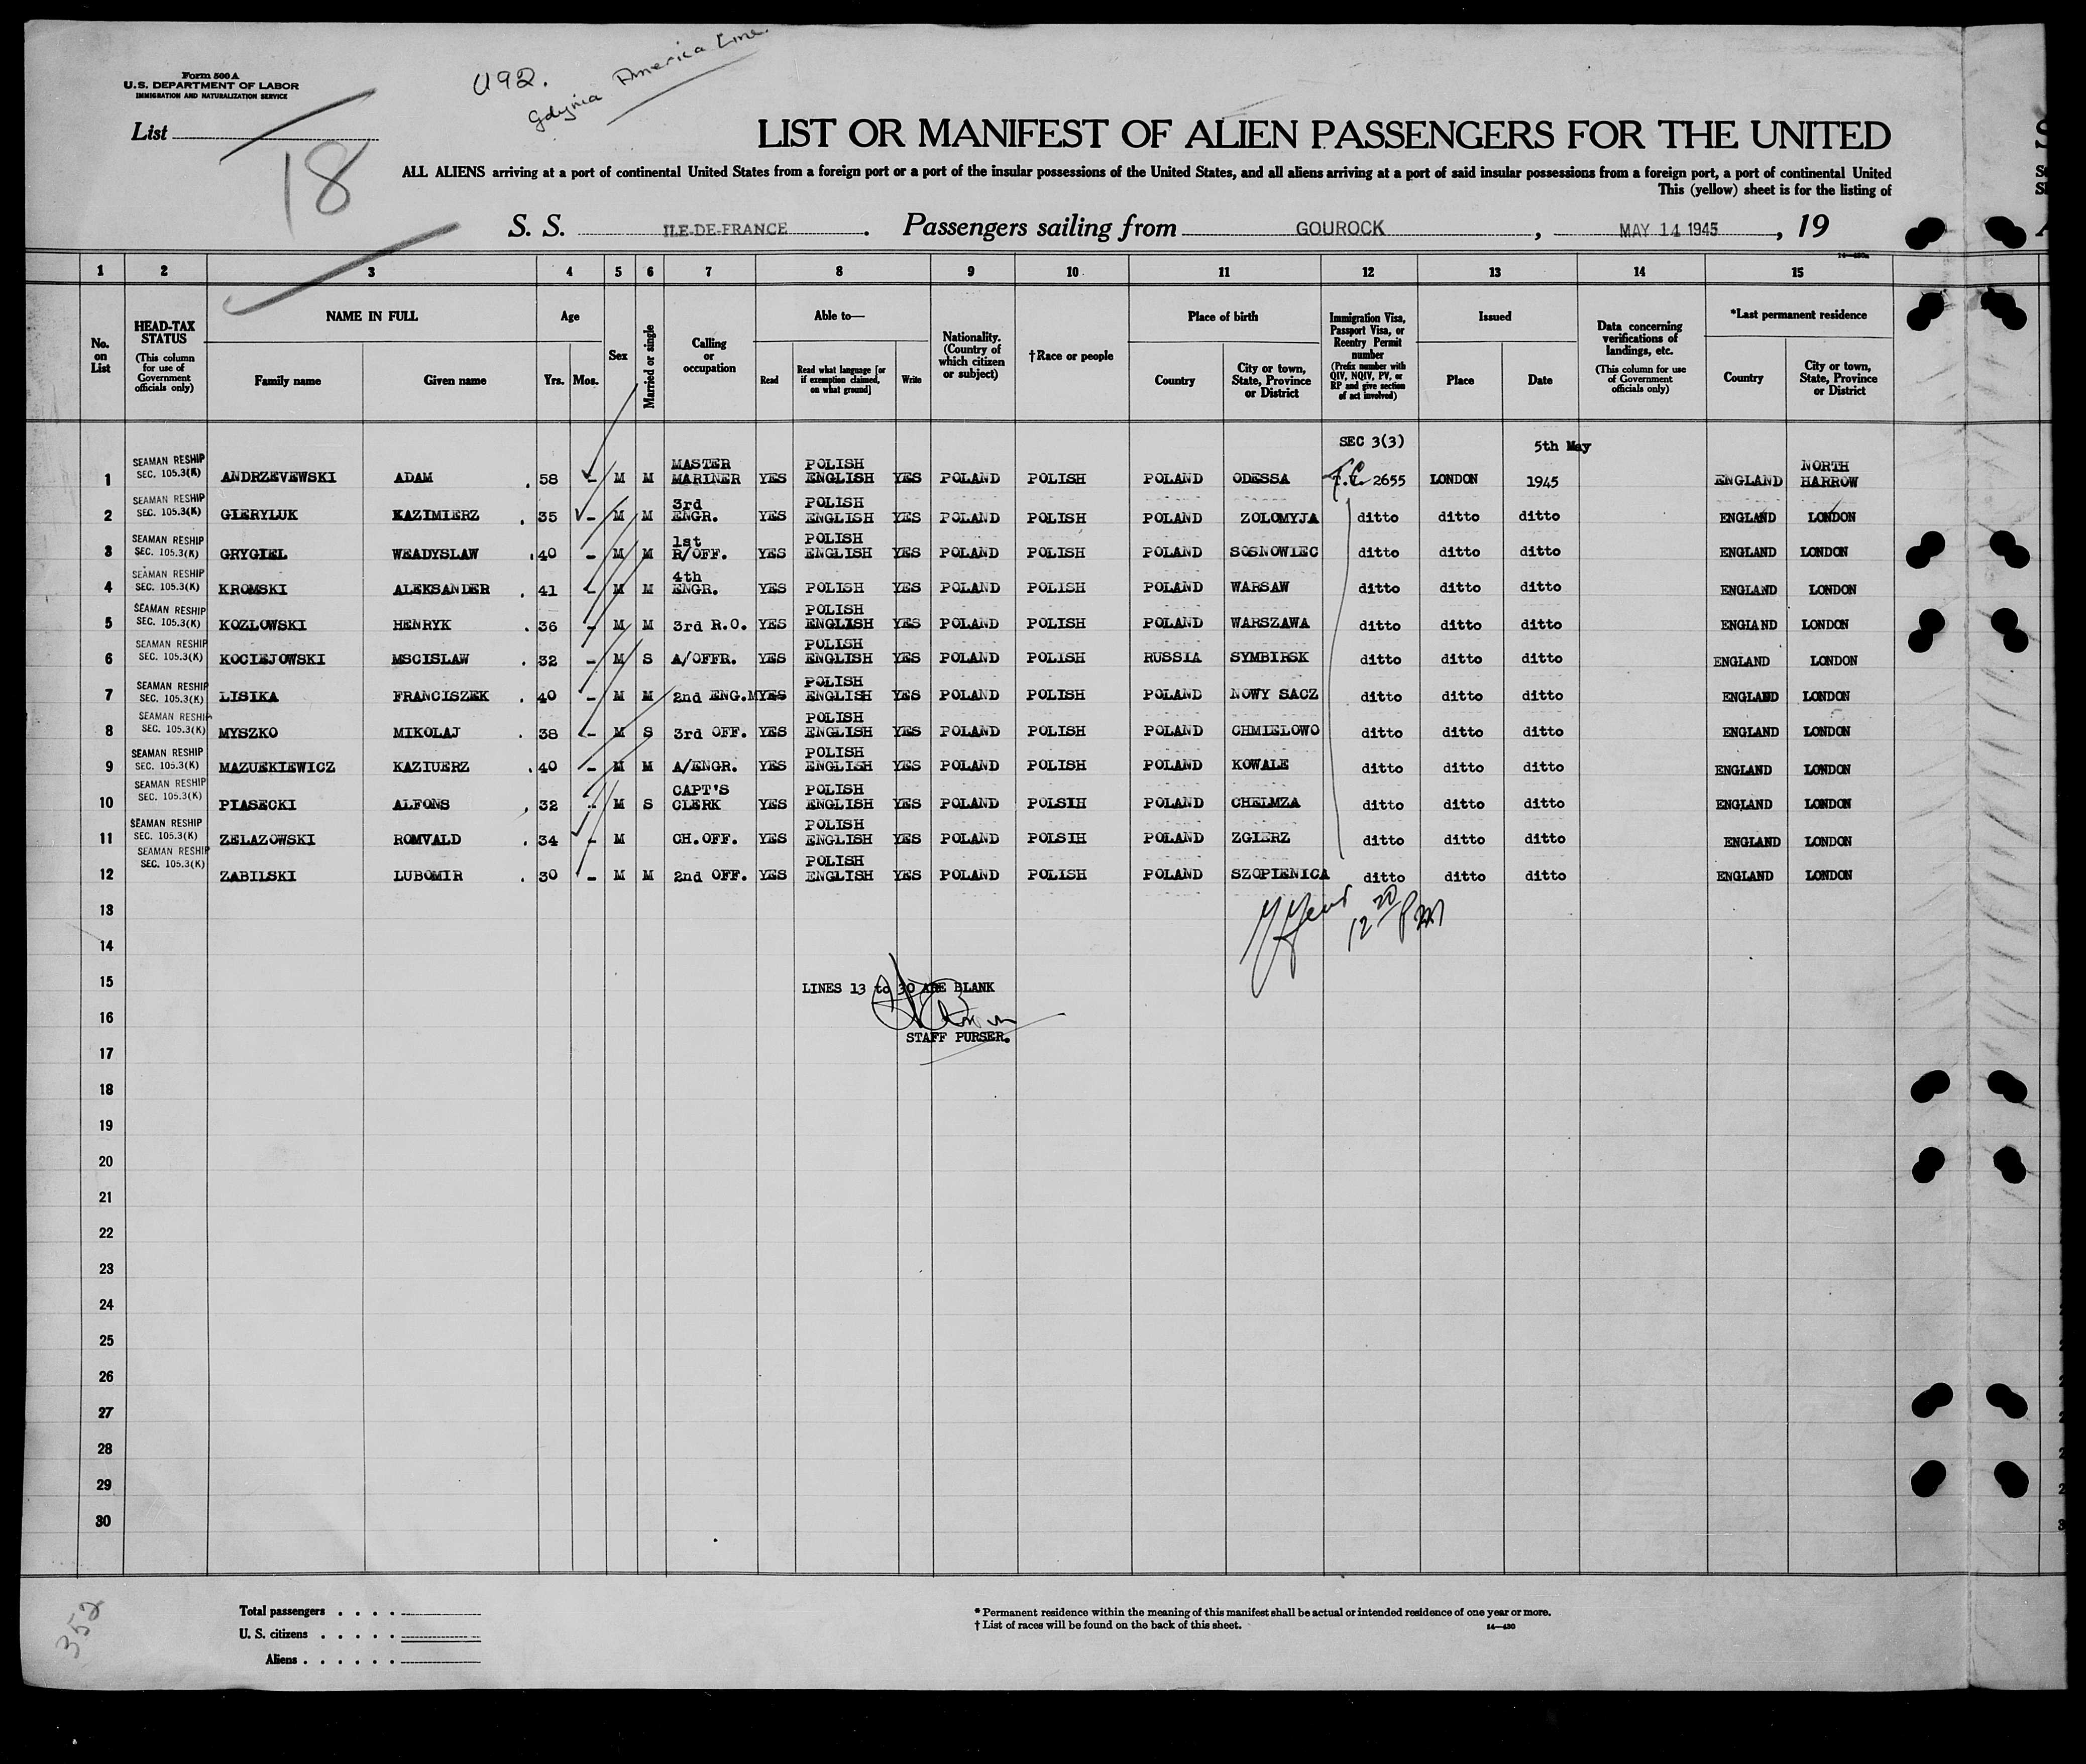 Form 500 A
U.S. DEPARTMENT OF LABOR
IMMIGRATION AND NATURALIZATION SERVICE
U92.
Gdynia America Line.
List
18
LIST OR MANIFEST OF ALIEN PASSENGERS FOR THE UNITED
ALL ALIENS arriving at a port of continental United States from a foreign port or a port of the insular possessions of the United States, and all aliens arriving at a port of said insular possessions from a foreign port, a port of continental United
This (yellow) sheet is for the listing of
S. S. ILE-DE-FRANCE. Passengers sailing from GOUROCK, MAY 14 1945, 19
1 2 3 4 5 6 7 8 9 10 11 12 13 14 15
No. on List
HEAD-TAX STATUS (This column for use of Government officials only)
NAME IN FULL Family name Given name
Age Yrs. Mos.
Sex
Married or single
Calling or occupation
Able to— Read Read what language [or if exemption claimed, on what ground] Write
Nationality. (Country of which citizen or subject)
†Race or people
Place of birth Country City or town, State, Province or District
Immigration Visa, Passport Visa, or Reentry Permit number (Prefix number with QIV, NQIV, PV, or RP and give section of act involved)
Issued Place Date
Data concerning verifications of landings, etc. (This column for use of Government officials only)
*Last permanent residence Country City or town, State, Province or District
SEC 3(3) 5th May
1 SEAMAN RESHIP SEC. 105.3(K) ANDRZEVEWSKI ADAM 58 - M M MASTER MARINER YES POLISH ENGLISH YES POLAND POLISH POLAND ODESSA 2655 LONDON 1945 ENGLAND NORTH HARROW
2 SEAMAN RESHIP SEC. 105.3(K) GIERYLUK KAZIMIERZ 35 - M M 3rd ENGR. YES POLISH ENGLISH YES POLAND POLISH POLAND ZOLOMYJA ditto ditto ditto ENGLAND LONDON
3 SEAMAN RESHIP SEC. 105.3(K) GRYGIEL WEADYSLAW 40 - M M 1st R/OFF. YES POLISH ENGLISH YES POLAND POLISH POLAND SOSNOWIEC ditto ditto ditto ENGLAND LONDON
4 SEAMAN RESHIP SEC. 105.3(K) KROMSKI ALEKSANDER 41 - M M 4th ENGR. YES POLISH YES POLAND POLISH POLAND WARSAW ditto ditto ditto ENGLAND LONDON
5 SEAMAN RESHIP SEC. 105.3(K) KOZLOWSKI HENRYK 36 - M M 3rd R.O. YES POLISH ENGLISH YES POLAND POLISH POLAND WARSZAWA ditto ditto ditto ENGLAND LONDON
6 SEAMAN RESHIP SEC. 105.3(K) KOCIEJOWSKI MSCISLAW 32 - M S A/OFFR. YES POLISH ENGLISH YES POLAND POLISH RUSSIA SYMBIRSK ditto ditto ditto ENGLAND LONDON
7 SEAMAN RESHIP SEC. 105.3(K) LISIKA FRANCISZEK 40 - M M 2nd ENG. YES POLISH ENGLISH YES POLAND POLISH POLAND NOWY SACZ ditto ditto ditto ENGLAND LONDON
8 SEAMAN RESHIP SEC. 105.3(K) MYSZKO MIKOLAJ 38 - M S 3rd OFF. YES POLISH ENGLISH YES POLAND POLISH POLAND CHMIELOWO ditto ditto ditto ENGLAND LONDON
9 SEAMAN RESHIP SEC. 105.3(K) MAZUEKIEWICZ KAZIUERZ 40 - M M A/ENGR. YES POLISH ENGLISH YES POLAND POLISH POLAND KOWALE ditto ditto ditto ENGLAND LONDON
10 SEAMAN RESHIP SEC. 105.3(K) PIASECKI ALFONS 32 - M S CAPT'S CLERK YES POLISH ENGLISH YES POLAND POLSIH POLAND CHELMZA ditto ditto ditto ENGLAND LONDON
11 SEAMAN RESHIP SEC. 105.3(K) ZELAZOWSKI ROMVALD 34 - M CH.OFF. YES POLISH ENGLISH YES POLAND POLSIH POLAND ZGIERZ ditto ditto ditto ENGLAND LONDON
12 SEAMAN RESHIP SEC. 105.3(K) ZABILSKI LUBOMIR 30 - M M 2nd OFF. YES POLISH ENGLISH YES POLAND POLISH POLAND SZOPIENICA ditto ditto ditto ENGLAND LONDON
13
12 20 PM
14
15 LINES 13 to 30 ARE BLANK
16
STAFF PURSER.
17
18
19
20
21
22
23
24
25
26
27
28
29
30
352
Total passengers . . . .
U. S. citizens . . . . .
Aliens . . . . . .
* Permanent residence within the meaning of this manifest shall be actual or intended residence of one year or more.
† List of races will be found on the back of this sheet.
14—430